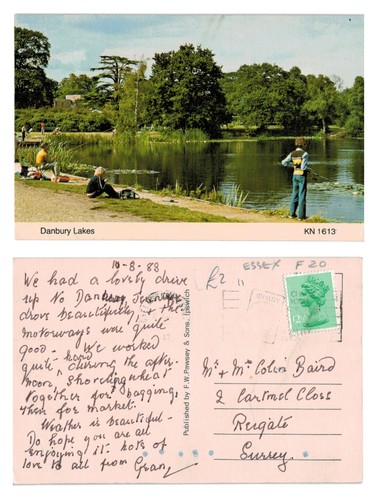 Danbury Lakes
KN 1613
10-8-83
We had a lovely drive
up to Danbury
drove beautifully, & the
motorways were quite
good - We worked
quite hard
during the after-
noon, Shovelling wheat
together for bagging
then for market.
Weather is beautiful -
Do hope you are all
enjoying it lots of
love to all from Gran
Published by F.W. Pawsey & Sons, Ipswich
£2
ESSEX F20
Mr & Mrs Colin Baird
2 Cartmel Close
Reigate
Surrey.